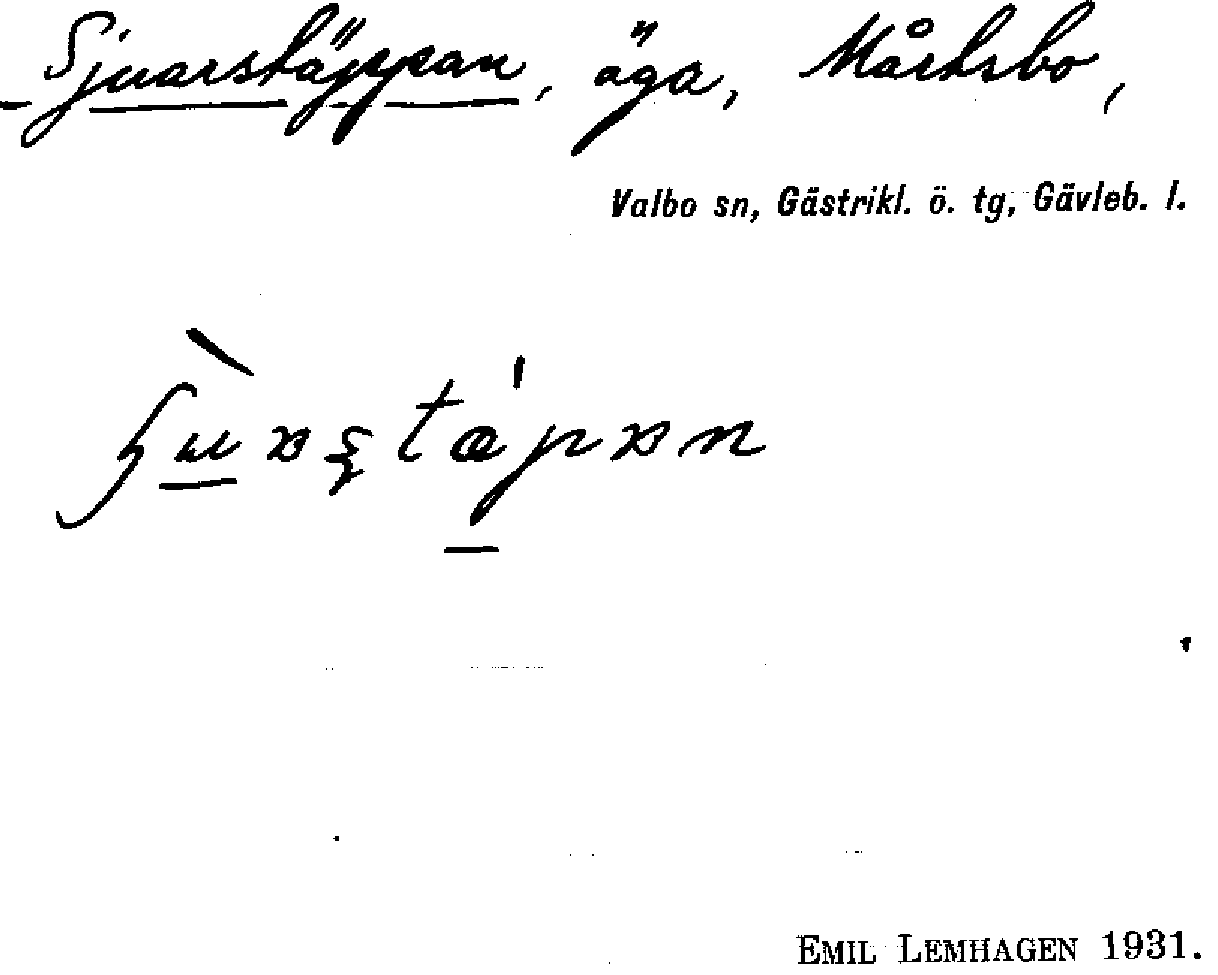 Sjuarstäppan, äga, Mårtsbo,
Valbo sn, Gästrikl. ö. tg, Gävleb. l.
EMIL LEMHAGEN 1931.